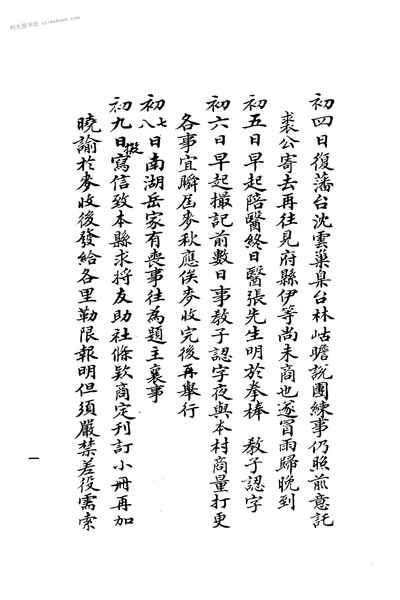 初四日復藩台沈雲巢臬台林岵瞻說團練事仍照前意託
裘公寄去再往見府縣伊等尚未商也遂冒雨歸晚到
初五日早起陪醫終日醫張先生明於拳棒 教子認字
初六日早起撮記前數日事教子認字夜與本村商量打更
各事宜瞬屆麥秋應俟麥收完後再舉行
初七八日南湖岳家有喪事往為題主襄事
初九日擬寫信致本縣求將友助社條款商定刊訂小冊再加
曉諭於麥收後發給各里勒限報明但須嚴禁差役需索
一